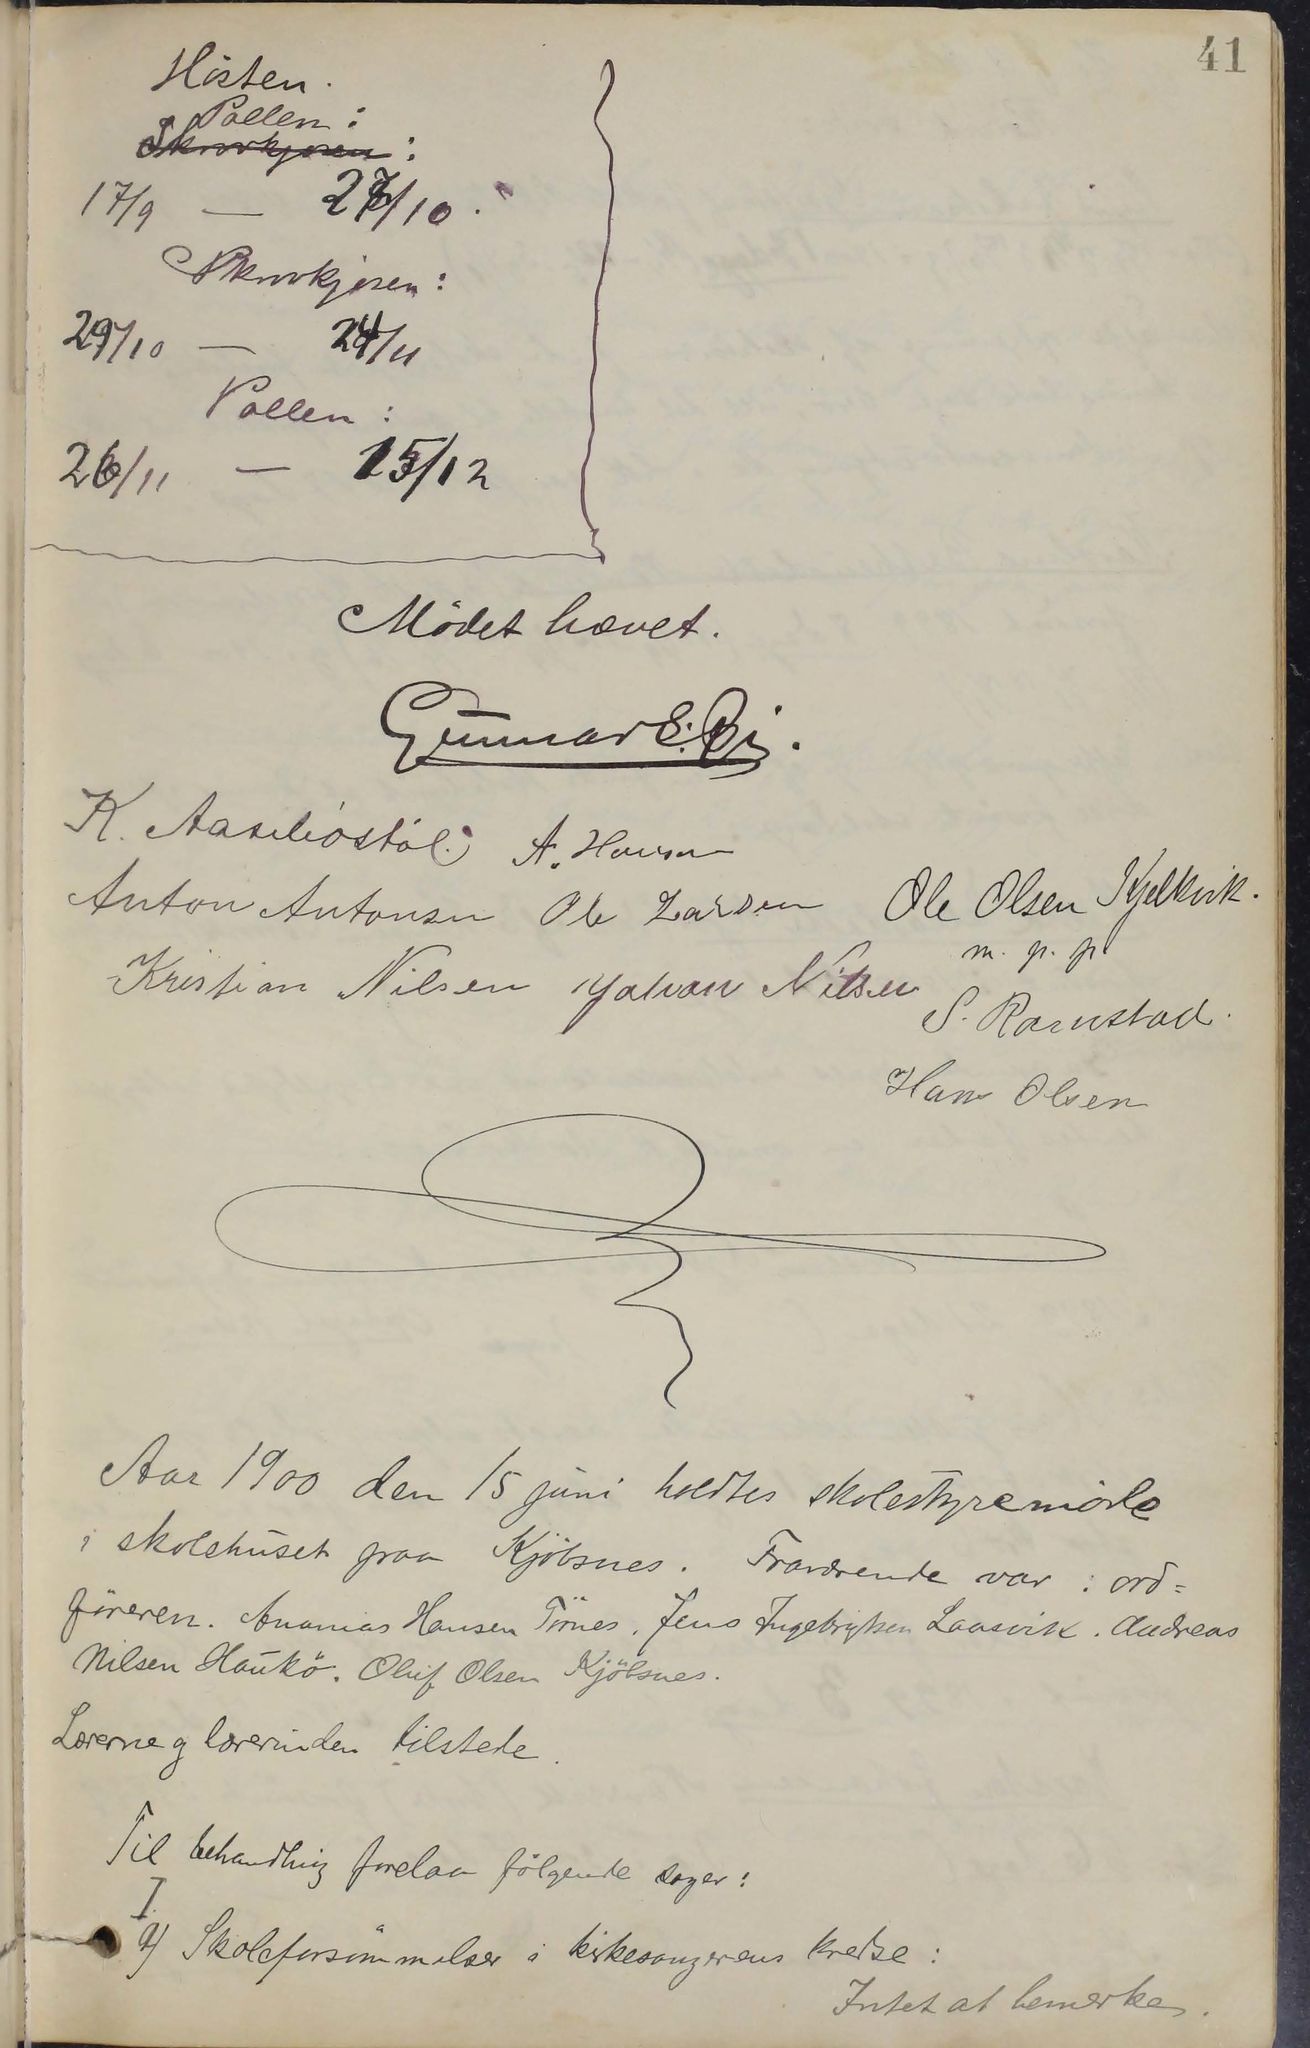 41
Hösten.
Pollen:
Skrovkjosen:
17/9 — 27/10.
Skrovkjosen:
29/10 — 24/11
Pollen:
26/11 — 15/12
Mödet hævet.
Gunnar E. Bö.
K. Aaseliöstöl. A. Hansen
Anton Antonsen Ole Larsen Ole Olsen Kjelkvik.
m. p. p.
Kristian Nilsen Johan Nilsen
S. Ramstad.
Hans Olsen
Aar 1900 den 15 juni holdtes skolestyremöde
i skolehuset paa Kjöbsnes. Fraværende var: ord=
föreren. Ananias Hansen Törnes. Jens Ingebrigtsen Laasvik. Andreas
Nilsen Haukö. Oluf Olsen Kjöbsnes.
Lærerne og lærerinden tilstede.
Til behandling forelaa fölgende sager:
I.
a) Skoleforsömmelser i kirkesangerens kredse:
Intet at bemerke.